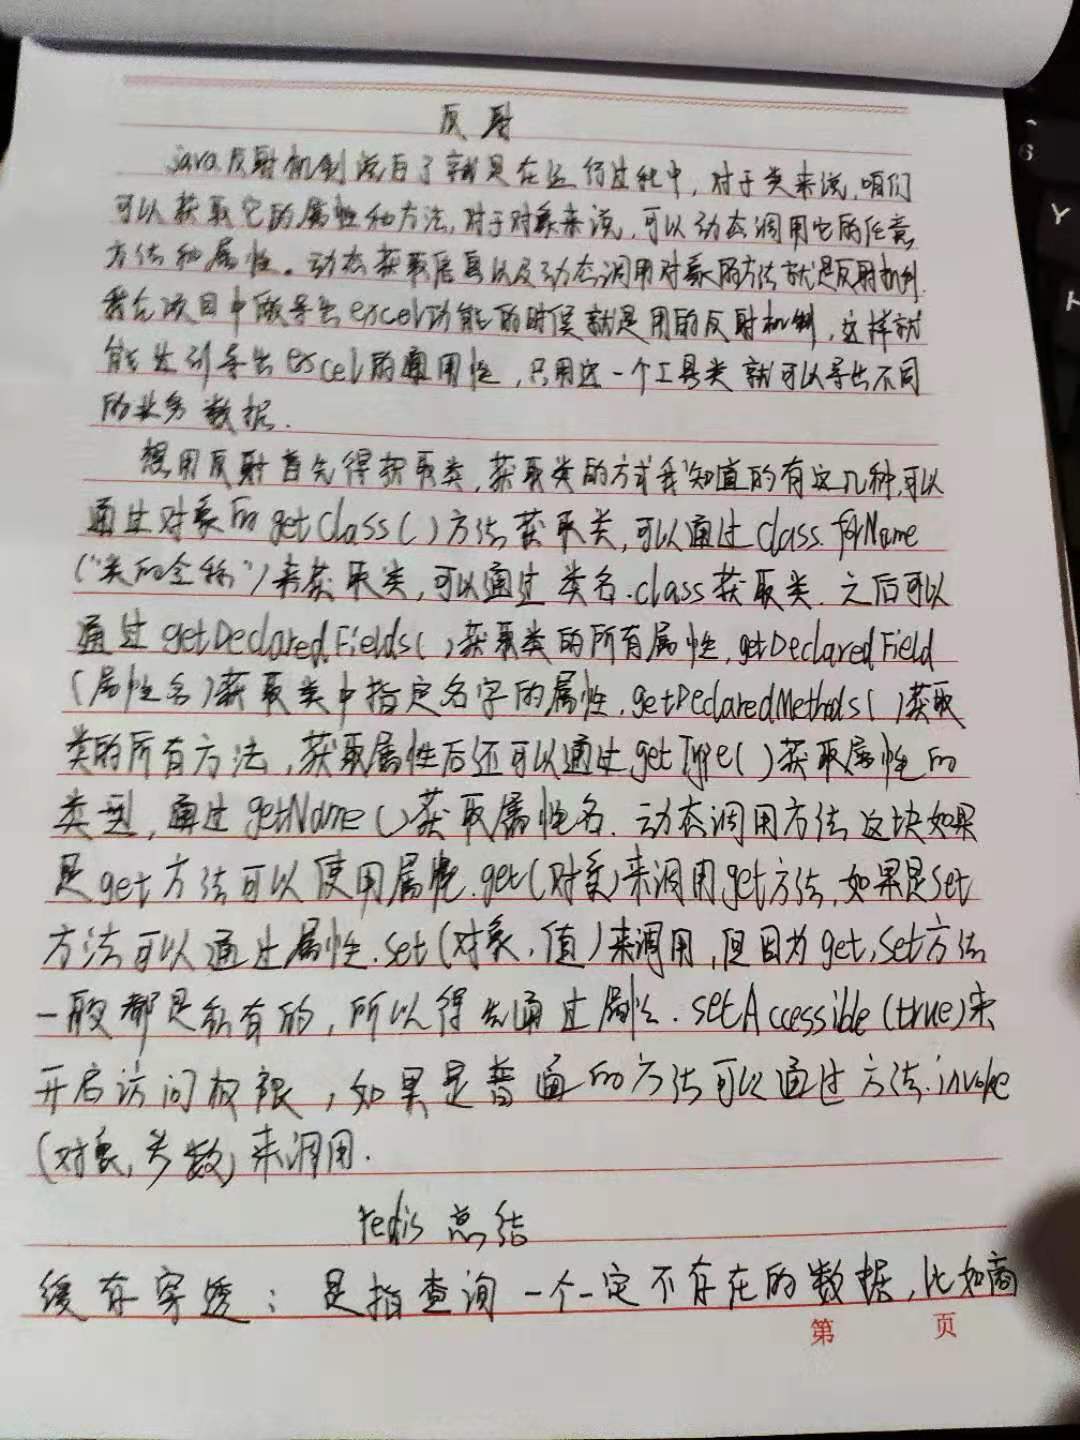 反射
java反射机制说白了就是在运行过程中，对于类来说，咱们
可以获取它的属性和方法，对于对象来说，可以动态调用它的任意
方法和属性。动态获取信息以及动态调用对象的方法就是反射机制.
我在项目中做导出excel功能的时候就是用的反射机制，这样就
能达到导出excel的通用性，只用这一个工具类就可以导出不同
的业务数据.
想用反射首先得获取类，获取类的方式我知道的有这几种，可以
通过对象的getClass()方法获取类，可以通过Class.forName
("类的全称")来获取类，可以通过 类名.class获取类. 之后可以
通过getDeclaredFields()获取类的所有属性，getDeclaredField
(属性名)获取类中指定名字的属性，getDeclaredMethods()获取
类的所有方法，获取属性后还可以通过getType()获取属性的
类型，通过getName()获取属性名. 动态调用方法这块如果
是get方法可以使用属性.get(对象)来调用get方法，如果是set
方法可以通过属性.set(对象，值)来调用，但因为get，set方法
一般都是私有的，所以得先通过属性.setAccessible(true)来
开启访问权限，如果是普通的方法可以通过方法.invoke
(对象，参数)来调用.
redis 总结
缓存穿透：是指查询一个一定不存在的数据，比如商
第 页